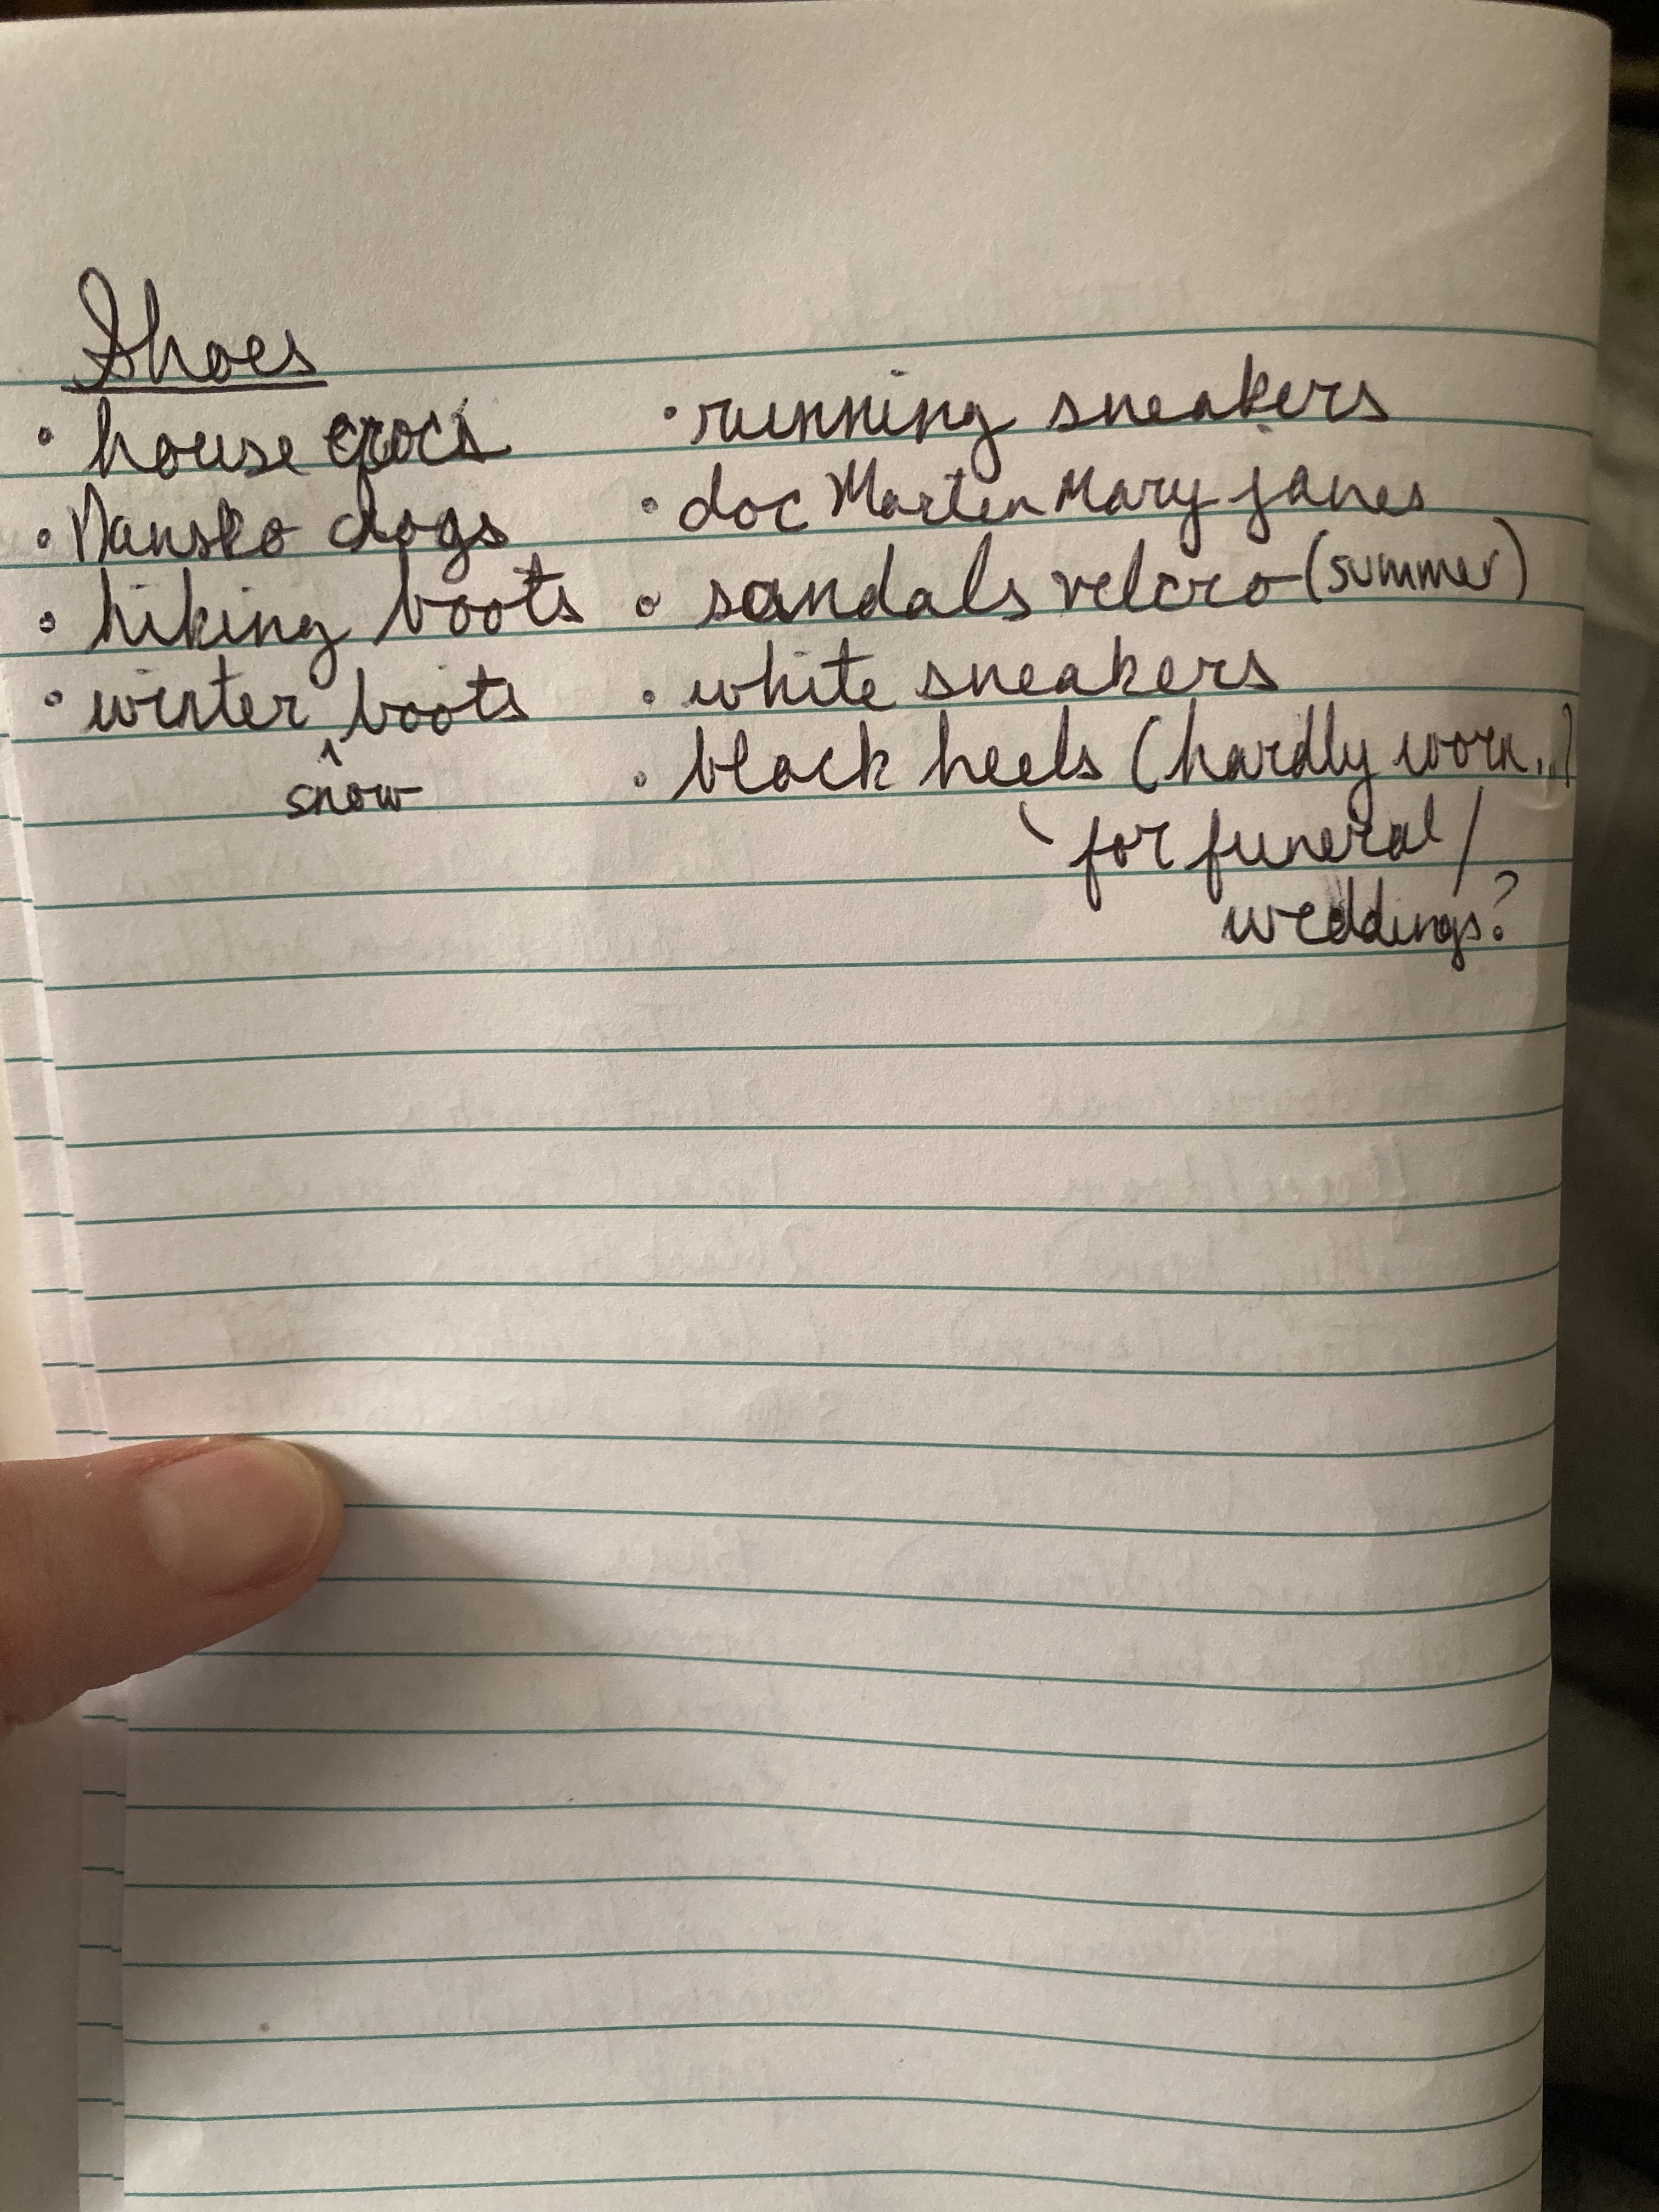 Shoes
• house crocs
• Dansko clogs
• hiking boots
• winter ^ boots
snow
• running sneakers
• doc Marten Mary janes
• sandals velcro (summer)
• white sneakers
• black heels (hardly worn...)
for funeral/
weddings?